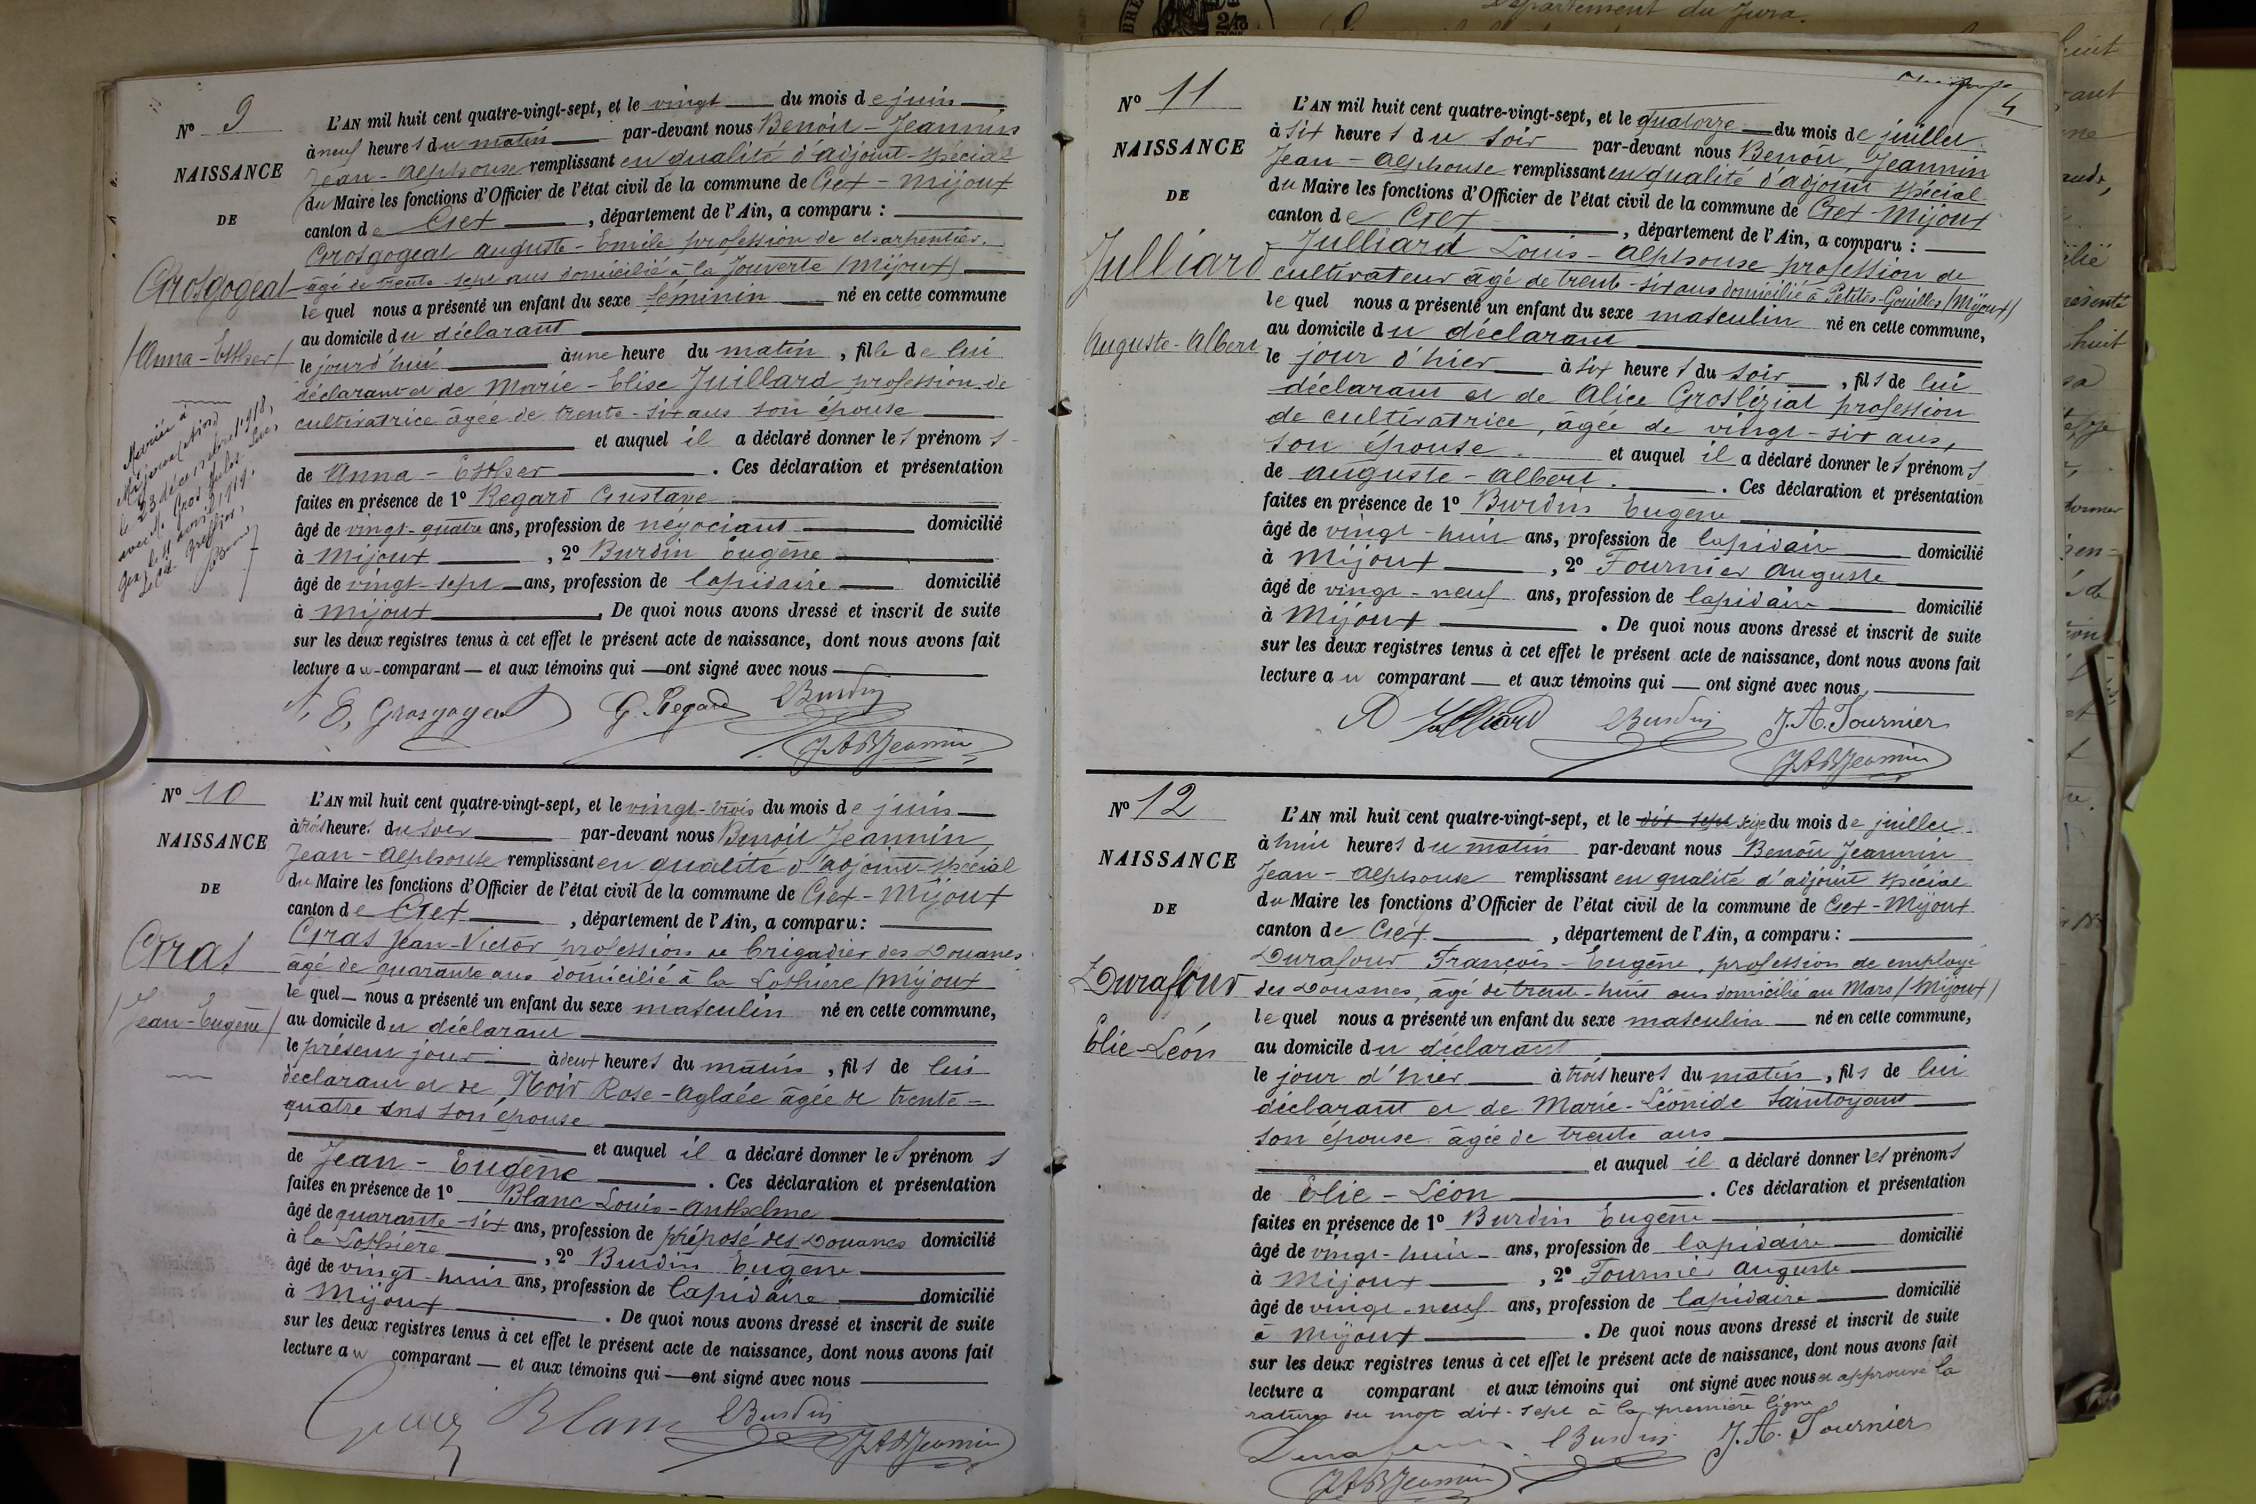 Département du Jura.
N° 9
NAISSANCE
DE
Grosgogeat
(Anna-Esther)
Mariée à
le 23 décembre 1918,
L'AN mil huit cent quatre-vingt-sept, et le vingt du mois de juin
à neuf heures du matin par-devant nous Benoit-Jeannin
Jean-Alphonse remplissant en qualité d'adjoint-spécial
du Maire les fonctions d'Officier de l'état civil de la commune de Gex-Mijoux
canton de Gex, département de l'Ain, a comparu :
Grosgogeat Auguste-Emile profession de charpentier,
âgé de trente-sept ans domicilié à la Jouverte (Mijoux)
lequel nous a présenté un enfant du sexe féminin né en cette commune
au domicile du déclarant
le jourd'hui à une heure du matin, fille de lui
déclarant et de Marie-Elise Juillard profession de
cultivatrice âgée de trente-six ans son épouse
et auquel il a déclaré donner les prénoms
de Anna-Esther. Ces déclaration et présentation
faites en présence de 1° Regard Gustave
âgé de vingt-quatre ans, profession de négociant domicilié
à Mijoux, 2° Burdin Eugène
âgé de vingt-sept ans, profession de lapidaire domicilié
à Mijoux. De quoi nous avons dressé et inscrit de suite
sur les deux registres tenus à cet effet le présent acte de naissance, dont nous avons fait
lecture au comparant et aux témoins qui ont signé avec nous
A. E. Grosgogeat G. Regard E Burdin
J A B Jeannin
N° 10
NAISSANCE
DE
Gras
(Jean-Eugène)
L'AN mil huit cent quatre-vingt-sept, et le vingt-trois du mois de juin
à trois heures du soir par-devant nous Benoit Jeannin,
Jean-Alphonse remplissant en qualité d'adjoint-spécial
du Maire les fonctions d'Officier de l'état civil de la commune de Gex-Mijoux
canton de Gex, département de l'Ain, a comparu :
Gras Jean-Victor profession de brigadier des Douanes
âgé de quarante ans domicilié à la Lothière (Mijoux
lequel nous a présenté un enfant du sexe masculin né en cette commune,
au domicile du déclarant
le présent jour à deux heures du matin, fils de lui
déclarant et de Noir Rose-Aglaée âgée de trente-
quatre ans son épouse
et auquel il a déclaré donner les prénoms
de Jean-Eugène. Ces déclaration et présentation
faites en présence de 1° Blanc Louis-Anthelme
âgé de quarante-six ans, profession de préposé des Douanes domicilié
à la Lothière, 2° Burdin Eugène
âgé de vingt-huit ans, profession de lapidaire domicilié
à Mijoux. De quoi nous avons dressé et inscrit de suite
sur les deux registres tenus à cet effet le présent acte de naissance, dont nous avons fait
lecture au comparant et aux témoins qui ont signé avec nous
Blanc E Burdin
J A B Jeannin
4
N° 11
NAISSANCE
DE
Julliard
Auguste-Albert
L'AN mil huit cent quatre-vingt-sept, et le quatorze du mois de juillet
à six heures du soir par-devant nous Benoit, Jeannin
Jean-Alphonse remplissant en qualité d'adjoint spécial
du Maire les fonctions d'Officier de l'état civil de la commune de Gex-Mijoux
canton de Gex, département de l'Ain, a comparu :
Julliard Louis-Alphonse profession de
cultivateur âgé de trente-six ans domicilié à Petites-Gouilles (Mijoux)
lequel nous a présenté un enfant du sexe masculin né en cette commune,
au domicile du déclarant
le jour d'hier à six heures du soir, fils de lui
déclarant et de Alice Grosléziat profession
de cultivatrice, âgée de vingt-six ans,
son épouse. et auquel il a déclaré donner les prénoms
de Auguste-Albert. Ces déclaration et présentation
faites en présence de 1° Burdin Eugène
âgé de vingt-huit ans, profession de lapidaire domicilié
à Mijoux, 2° Fournier Auguste
âgé de vingt-neuf ans, profession de lapidaire domicilié
à Mijoux. De quoi nous avons dressé et inscrit de suite
sur les deux registres tenus à cet effet le présent acte de naissance, dont nous avons fait
lecture au comparant et aux témoins qui ont signé avec nous,
A Julliard E Burdin J. A. Fournier
J A B Jeannin
N° 12
NAISSANCE
DE
Durafour
Elie-Léon
L'AN mil huit cent quatre-vingt-sept, et le dix-sept seize du mois de juillet
à huit heures du matin par-devant nous Benoit Jeannin
Jean-Alphonse remplissant en qualité d'adjoint spécial
du Maire les fonctions d'Officier de l'état civil de la commune de Gex-Mijoux
canton de Gex, département de l'Ain, a comparu :
Durafour François-Eugène, profession de employé
des Douanes, âgé de trente-huit ans domicilié au Mars (Mijoux)
lequel nous a présenté un enfant du sexe masculin né en cette commune,
au domicile du déclarant
le jour d'hier à trois heures du matin, fils de lui
déclarant et de Marie-Léonide Saintoyant
son épouse âgée de trente ans
et auquel il a déclaré donner les prénoms
de Elie-Léon. Ces déclaration et présentation
faites en présence de 1° Burdin Eugène
âgé de vingt-huit ans, profession de lapidaire domicilié
à Mijoux, 2° Fournier Auguste
âgé de vingt-neuf ans, profession de lapidaire domicilié
à Mijoux. De quoi nous avons dressé et inscrit de suite
sur les deux registres tenus à cet effet le présent acte de naissance, dont nous avons fait
lecture a comparant et aux témoins qui ont signé avec nous et approuvé la
rature du mot dix-sept à la première ligne
Durafour E Burdin J. A. Fournier
J A B Jeannin